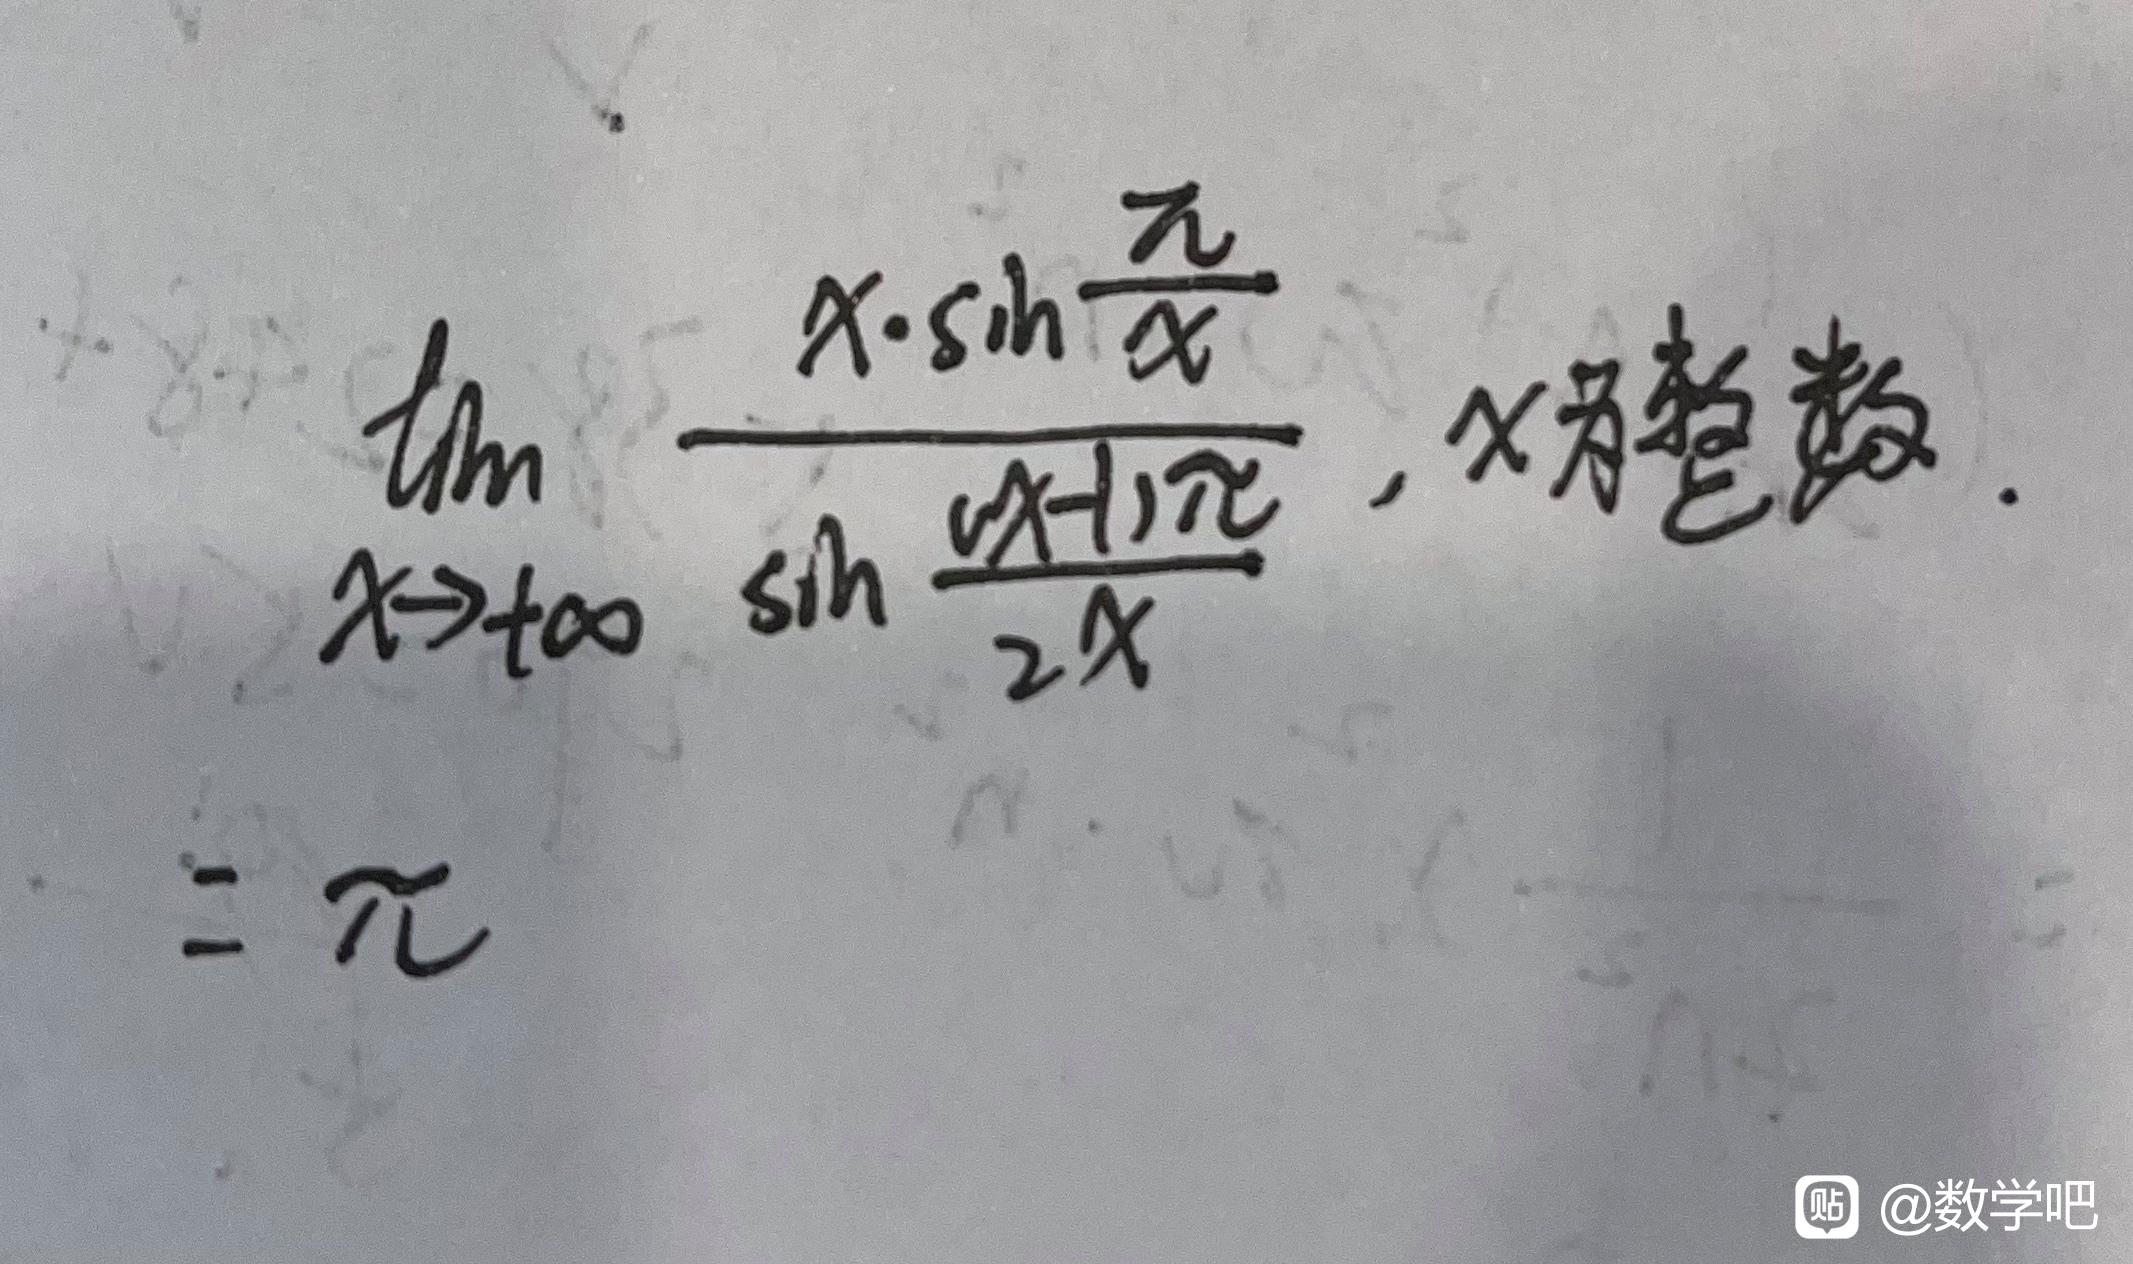 lim x→+∞ (x·sin π/x)/(sin (x-1)π/2x) , x为整数.
= π
贴 @数学吧